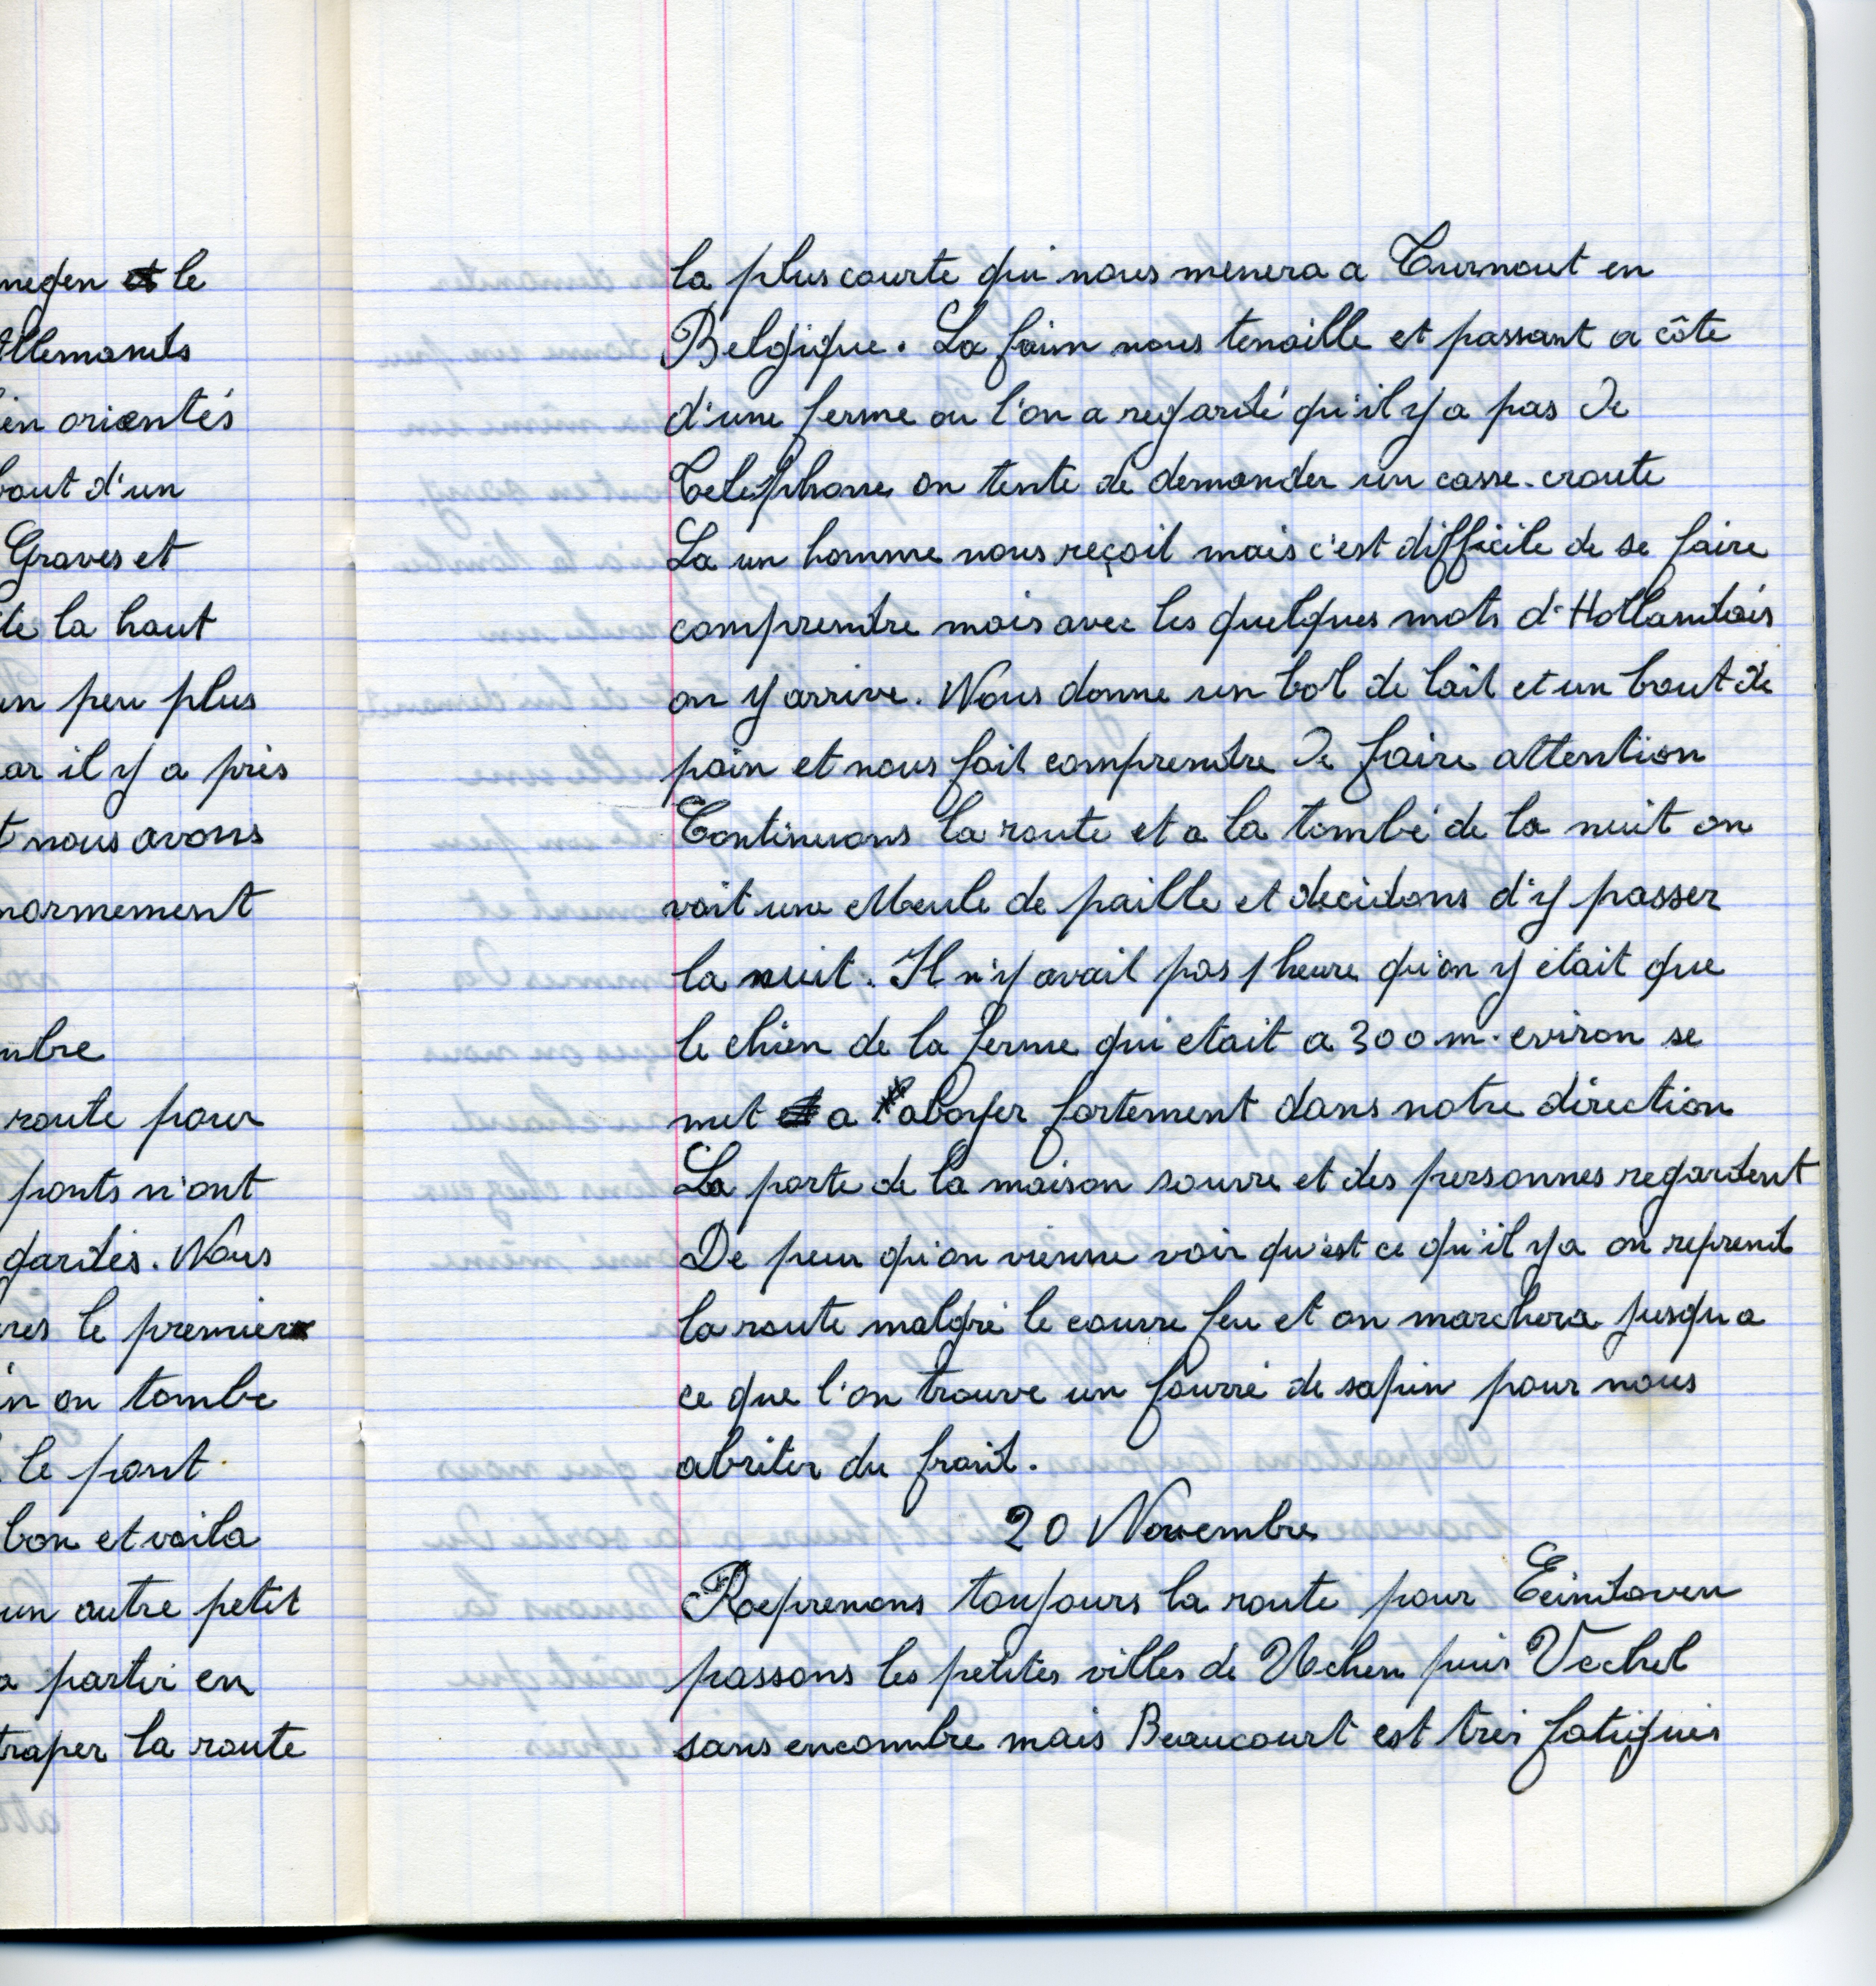 negen le
Allemands
ien orientés
bout d'un
Graves et
te la haut
un peu plus
ar il y a près
t nous avons
normement
mbre
route pour
ponts n'ont
gardés. Nous
res le premier
in on tombe
le pont
bon et voila
un autre petit
a partir en
traper la route
la plus courte qui nous menera a Turnout en
Belgique. La faim nous tenaille et passant a côte
d'une ferme ou l'on a regardé qu'il y a pas de
Telephone on tente de demander un casse-croute
La un homme nous reçoit mais c'est difficile de se faire
comprendre mais avec les quelques mots d'Hollandais
on y arrive. Nous donne un bol de lait et un bout de
pain et nous fait comprendre de faire attention
Continuons la route et a la tombé de la nuit on
voit une Meule de paille et decidons d'y passer
la nuit. Il n'y avait pas 1 heure qu'on y était que
le chien de la ferme qui etait a 300 m. eviron se
met a aboyer fortement dans notre direction
La porte de la maison souvre et des personnes regardent
De peur qu'on vienne voir qu'est ce qu'il y a on reprend
la route malgré le couvre feu et on marchera jusqu a
ce que l'on trouve un fourré de sapin pour nous
abriter du froid.
20 Novembre
Reprenons toujours la route pour Eeindoven
passons les petites villes de Uchen puis Vechel
sans encombre mais Beaucourt est très fatigués